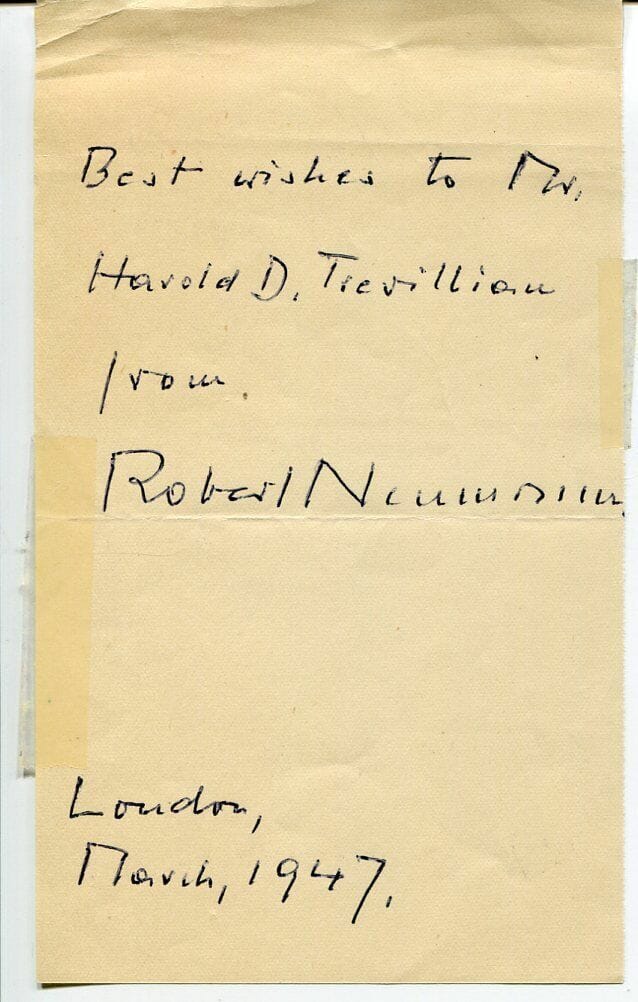 Best wishes to Mr.
Harold D. Trevillian
from
Robert Neumann.
London,
March, 1947.